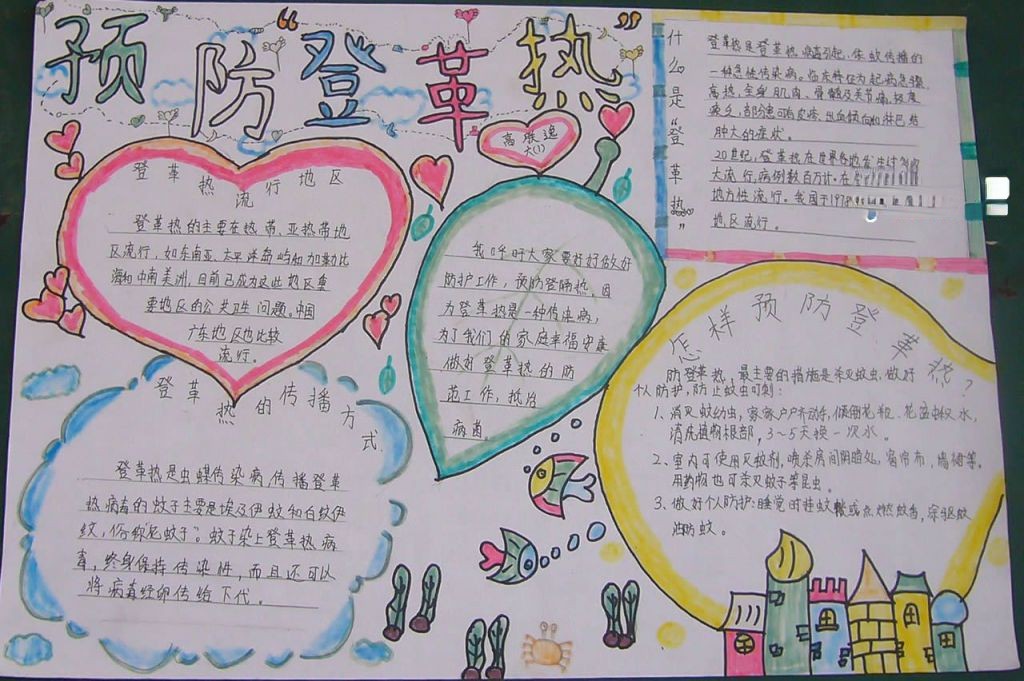 预防“登革热”
高医逸
大(1)
登革热流行地区
登革热的主要在热带、亚热带地
区流行，如东南亚、太平洋岛屿和加勒比
海和中南美洲，目前已成为这此地区重
要地区的公共卫生问题。中国
广东地区也比较
流行。
我呼吁大家要好好做好
防护工作，预防登革热。因
为登革热是一种传染病，
为了我们的家庭幸福安康
做好登革热的防
范工作，抵治
病菌。
什么是“登革热”
登革热是登革热病毒引起、伊蚊传播的
一种急性传染病。临床特征为起病急骤，
高热，全身肌肉、骨髓及关节痛，极度
疲乏，部份患可有皮疹、出血倾向和淋巴结
肿大的症状。
20世纪，登革热在世界各地发生过
大流行，病例数百万计。在
地方性流行。我国于1978
地区流行。
登革热的传播方式
登革热是虫媒传染病，传播登革
热病毒的蚊子主要是埃及伊蚊和白纹伊
蚊，俗称“花蚊子”。蚊子染上登革热病
毒，终身保持传染性，而且还可以
将病毒经卵传给下代。
怎样预防登革热？
防登革热，最主要的措施是杀灭蚊虫，做好
个人防护，防止蚊虫叮刺：
1、消灭蚊幼虫，家家户户齐动手，倾倒花瓶、花盆积水，
清洗植物根部，3～5天换一次水。
2、室内可使用灭蚊剂，喷杀房间阴暗处、窗帘布、墙裙等。
用药物也可杀灭蚊子等昆虫。
3、做好个人防护：睡觉时挂蚊帐或点燃蚊香，涂驱蚊
油防蚊。